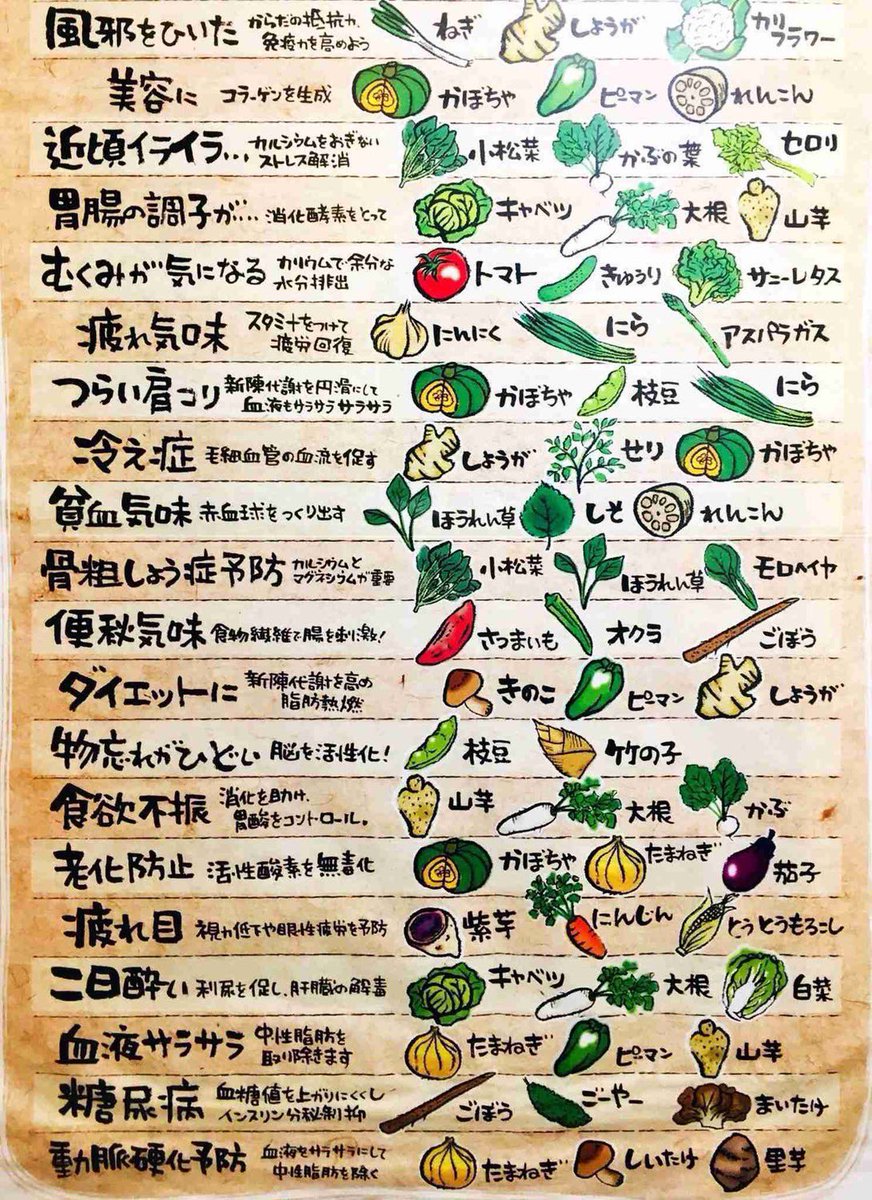 風邪をひいた からだの抵抗力、免疫力を高めよう ねぎ しょうが カリフラワー
美容に コラーゲンを生成 かぼちゃ ピーマン れんこん
近頃イライラ… カルシウムをおぎない ストレス解消 小松菜 かぶの葉 セロリ
胃腸の調子が… 消化酵素をとって キャベツ 大根 山芋
むくみが気になる カリウムで余分な水分排出 トマト きゅうり サニーレタス
疲れ気味 スタミナをつけて疲労回復 にんにく にら アスパラガス
つらい肩コリ 新陳代謝を円滑にして血液もサラサラサラサラ かぼちゃ 枝豆 にら
冷え症 毛細血管の血流を促す しょうが せり かぼちゃ
貧血気味 赤血球をつくり出す ほうれん草 しそ れんこん
骨粗しょう症予防 カルシウムとマグネシウムが重要 小松菜 ほうれん草 モロヘイヤ
便秘気味 食物繊維で腸を刺激! さつまいも オクラ ごぼう
ダイエットに 新陳代謝を高め脂肪熱燃 きのこ ピーマン しょうが
物忘れがひどい 脳を活性化! 枝豆 竹の子
食欲不振 消化を助け、胃酸をコントロール。 山芋 大根 かぶ
老化防止 活性酸素を無毒化 かぼちゃ たまねぎ 茄子
疲れ目 視力低下や眼性疲労を予防 紫芋 にんじん とうとうもろこし
二日酔い 利尿を促し、肝臓の解毒 キャベツ 大根 白菜
血液サラサラ 中性脂肪を取り除きます たまねぎ ピーマン 山芋
糖尿病 血糖値を上がりにくくしインスリン分秘制抑 ごぼう ごーやー まいたけ
動脈硬化予防 血液をサラサラにして中性脂肪を除く たまねぎ しいたけ 里芋